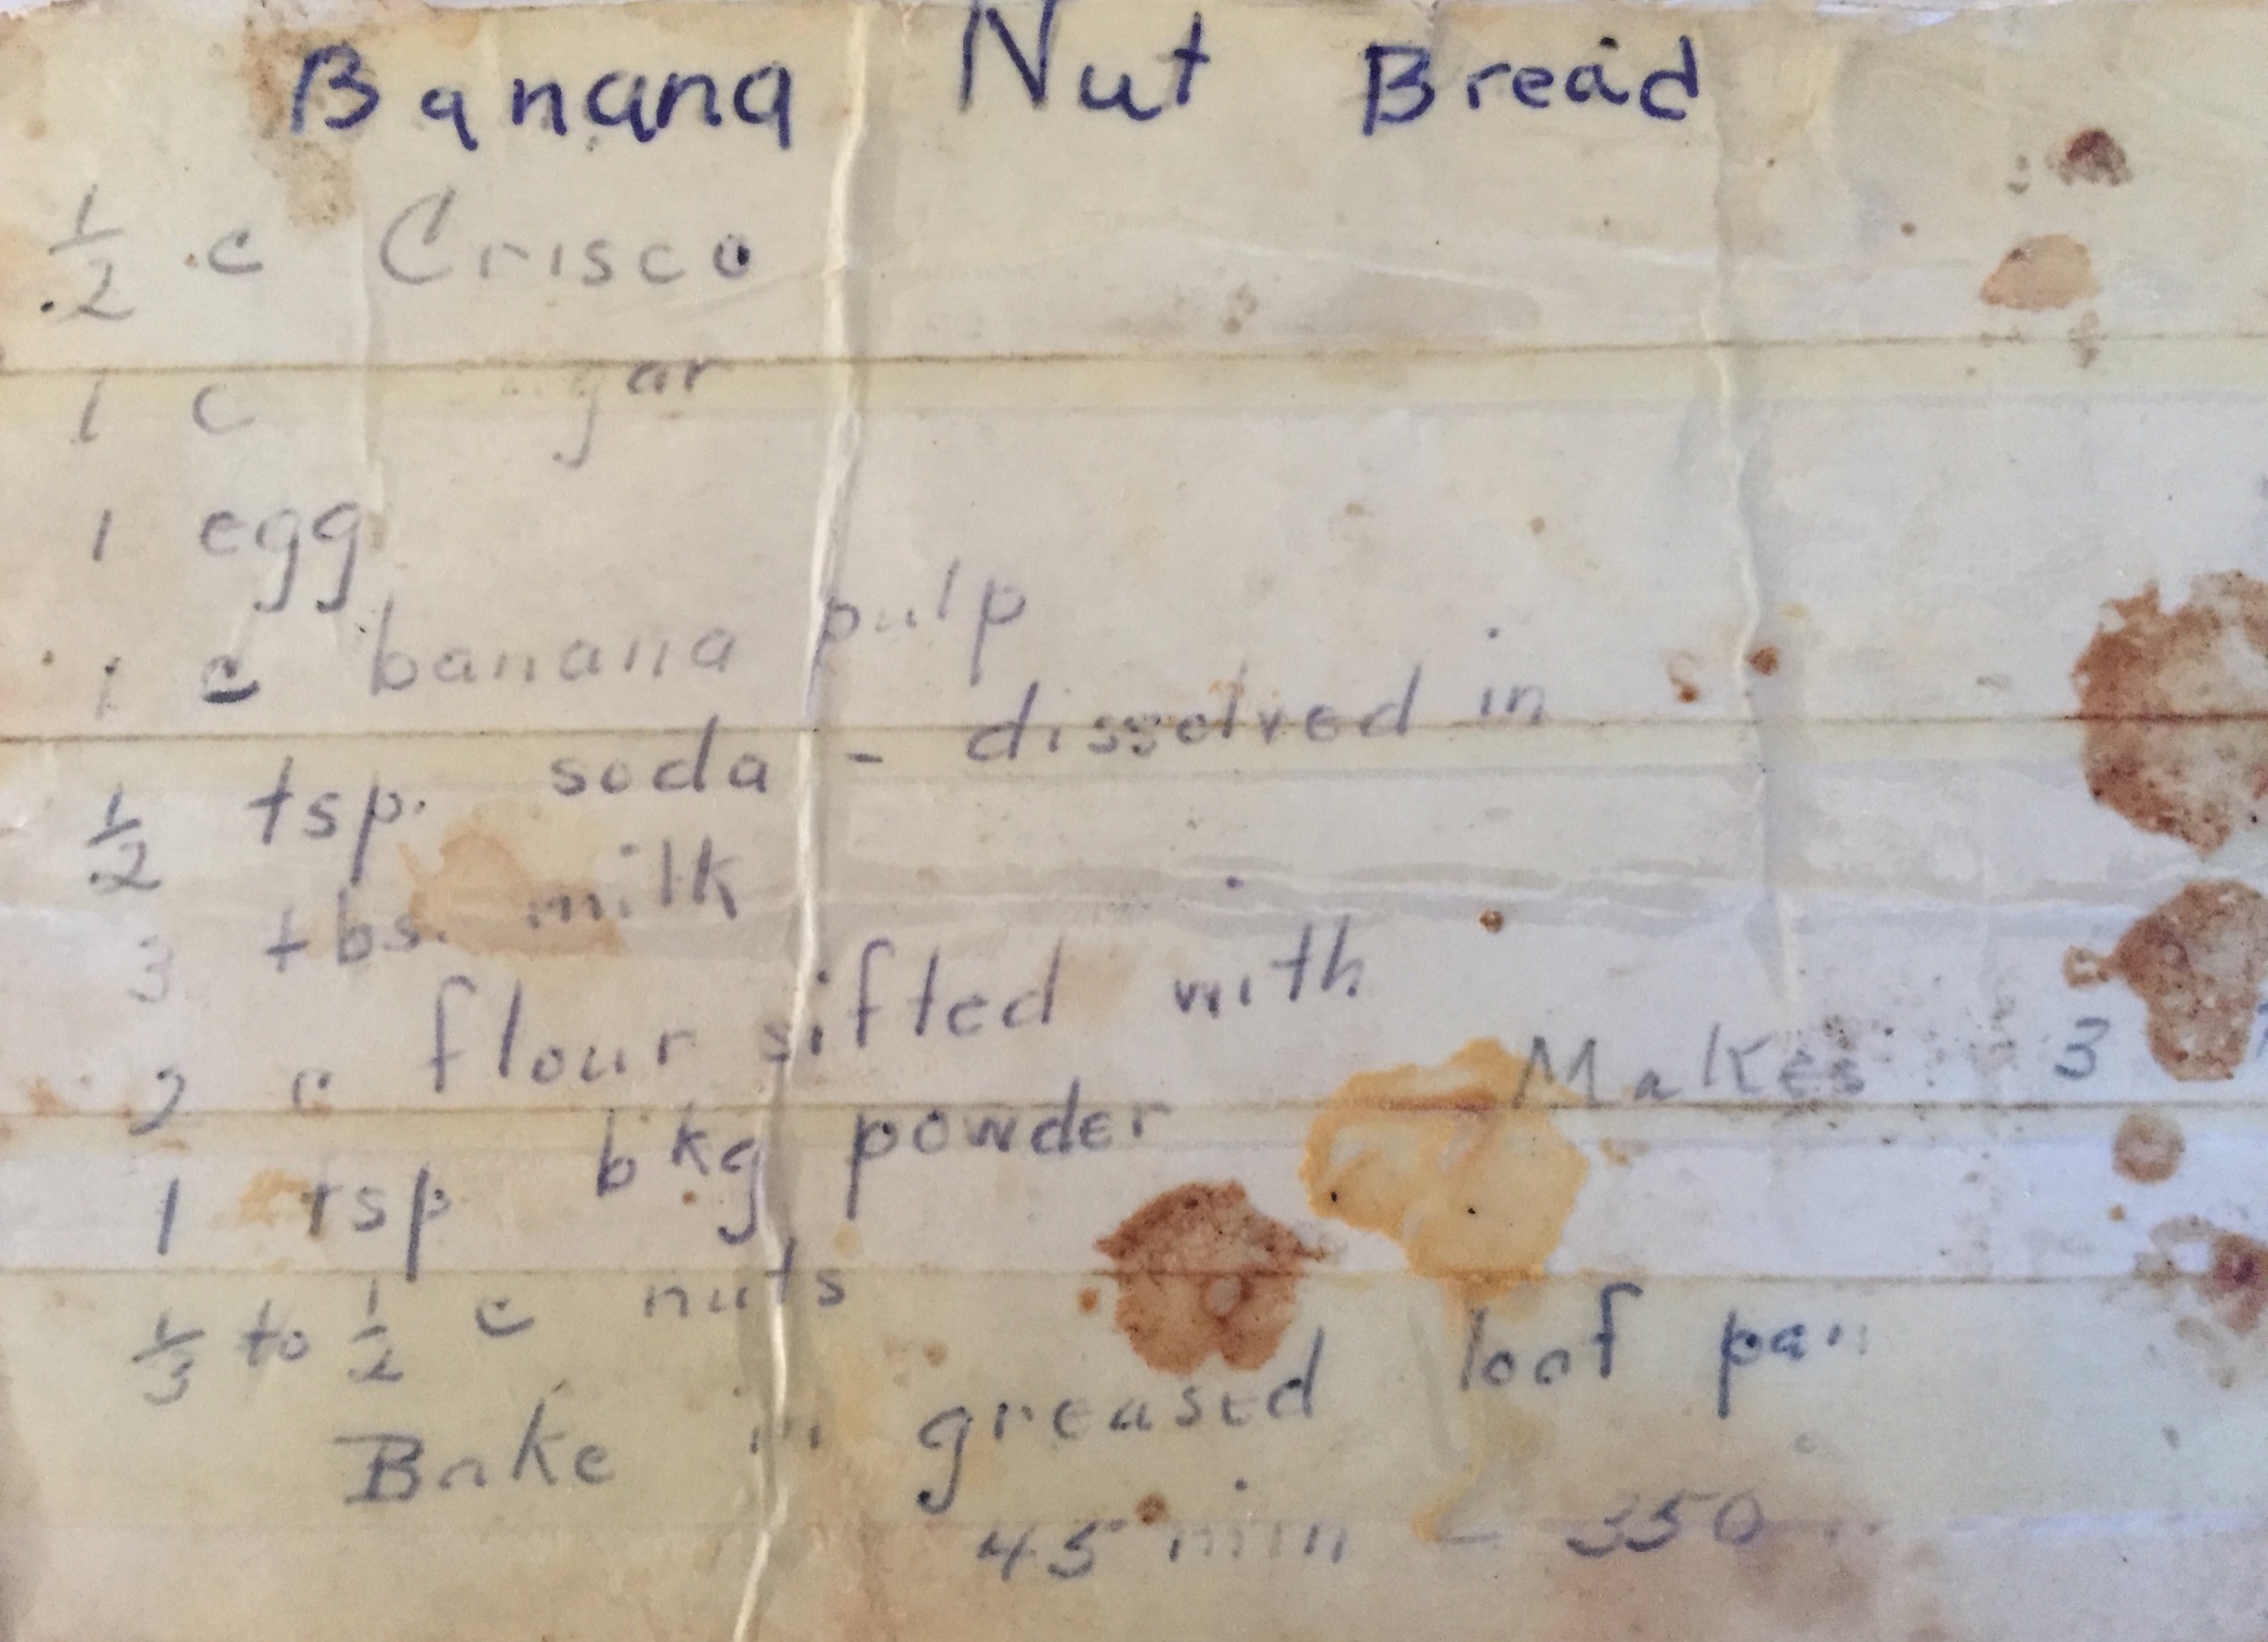 Banana Nut Bread
1/2 c Crisco
1 c gar
1 egg
1 c banana pulp
1/2 tsp. soda - dissolved in
3 tbs. milk
2 c flour sifted with
1 tsp bkg powder
Makes 3
1/3 to 1/2 c nuts
Bake in greased loaf pan
45 min - 350